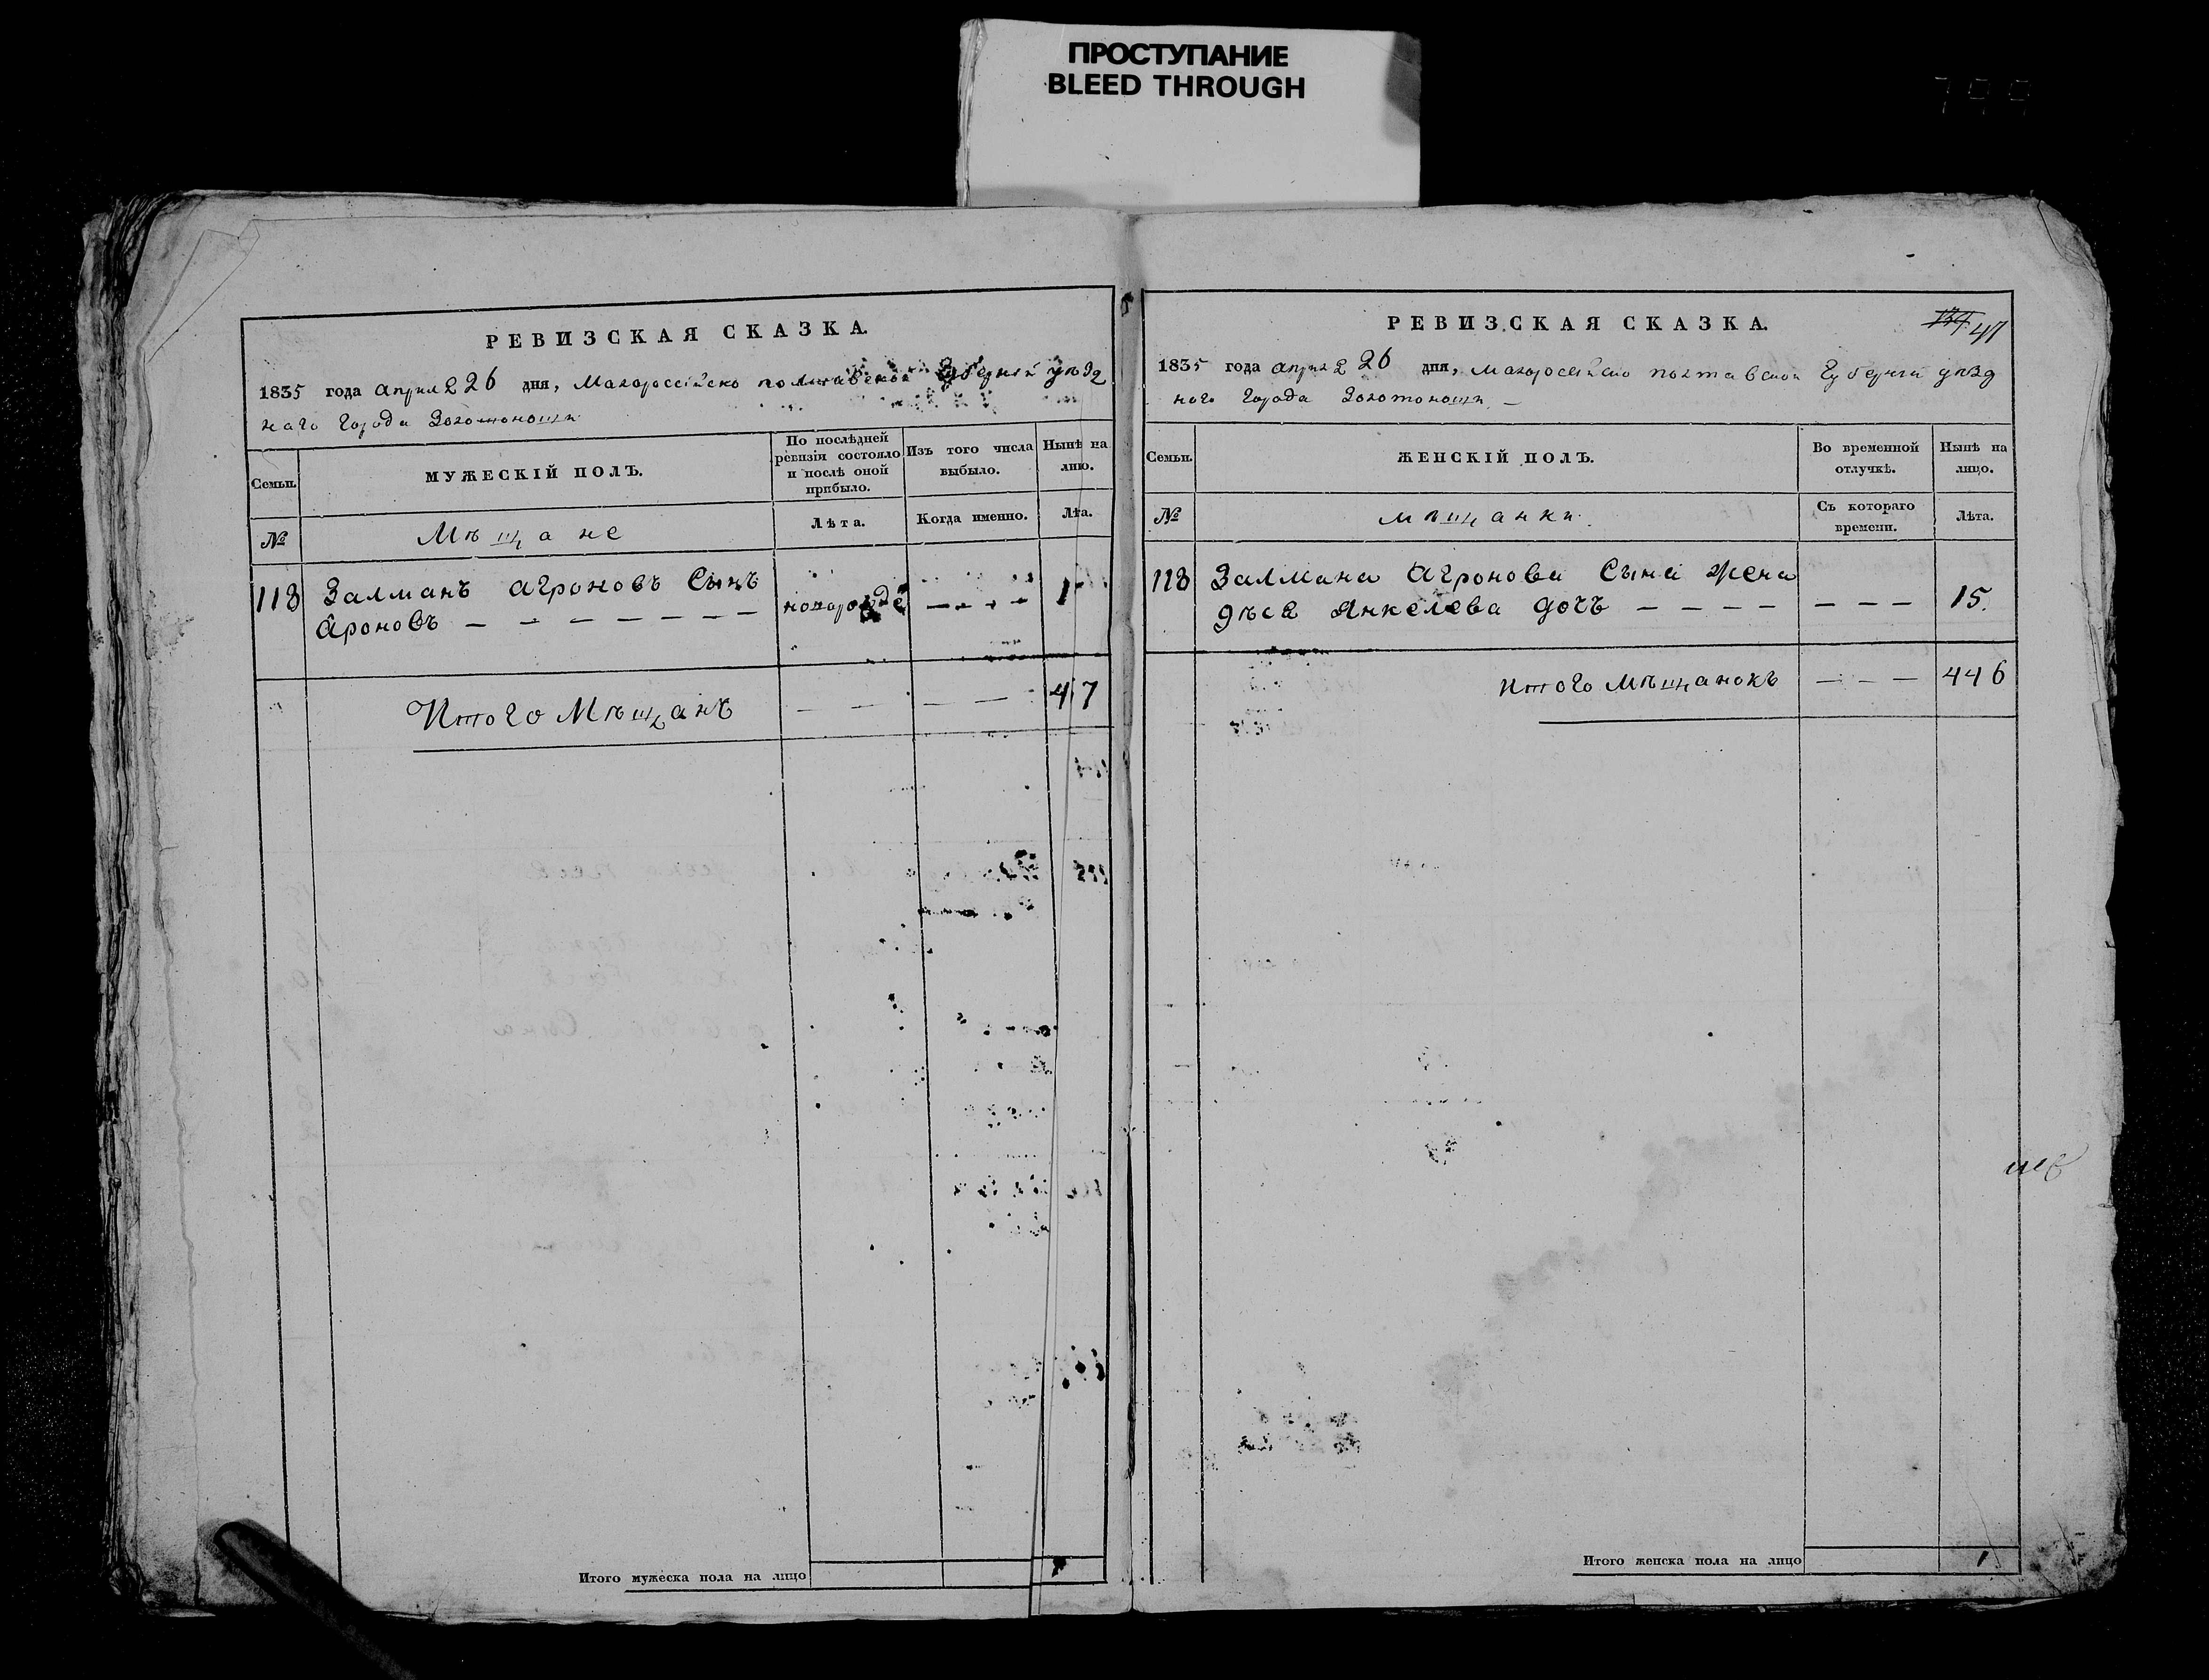 ПРОСТУПАНИЕ
BLEED THROUGH
РЕВИЗСКАЯ СКАЗКА.
1835 года апреля 26 дня, Малоросейско полтавской Губерній уѣзд
наго Города Золотоноши
Семьи.
МУЖЕСКІЙ ПОЛЪ.
По послѣдней ревизіи состояло и послѣ оной прибыло.
Изъ того числа выбыло.
Нынѣ на лицо.
№
Мѣщане
Лѣта.
Когда именно.
Лѣта.
118 Залманъ Агроновъ Сынъ
Ароновъ — — — — — — —
Итого Мѣщанъ — — — — 417
Итого мужеска пола на лицо
РЕВИЗСКАЯ СКАЗКА.
47
1835 года апреля 26 дня, Малоросейско полтавской Губерній уѣзд
наго Города Золотоноши —
Семьи.
ЖЕНСКІЙ ПОЛЪ.
Во временной отлучкѣ.
Нынѣ на лицо.
№
мѣщанки
Съ котораго времени.
Лѣта.
118 Залмана Агронова Сына жена
Янкелева дочъ — — — — — — — 15.
Итого Мѣщанокъ — — — 446
Итого женска пола на лицо 1